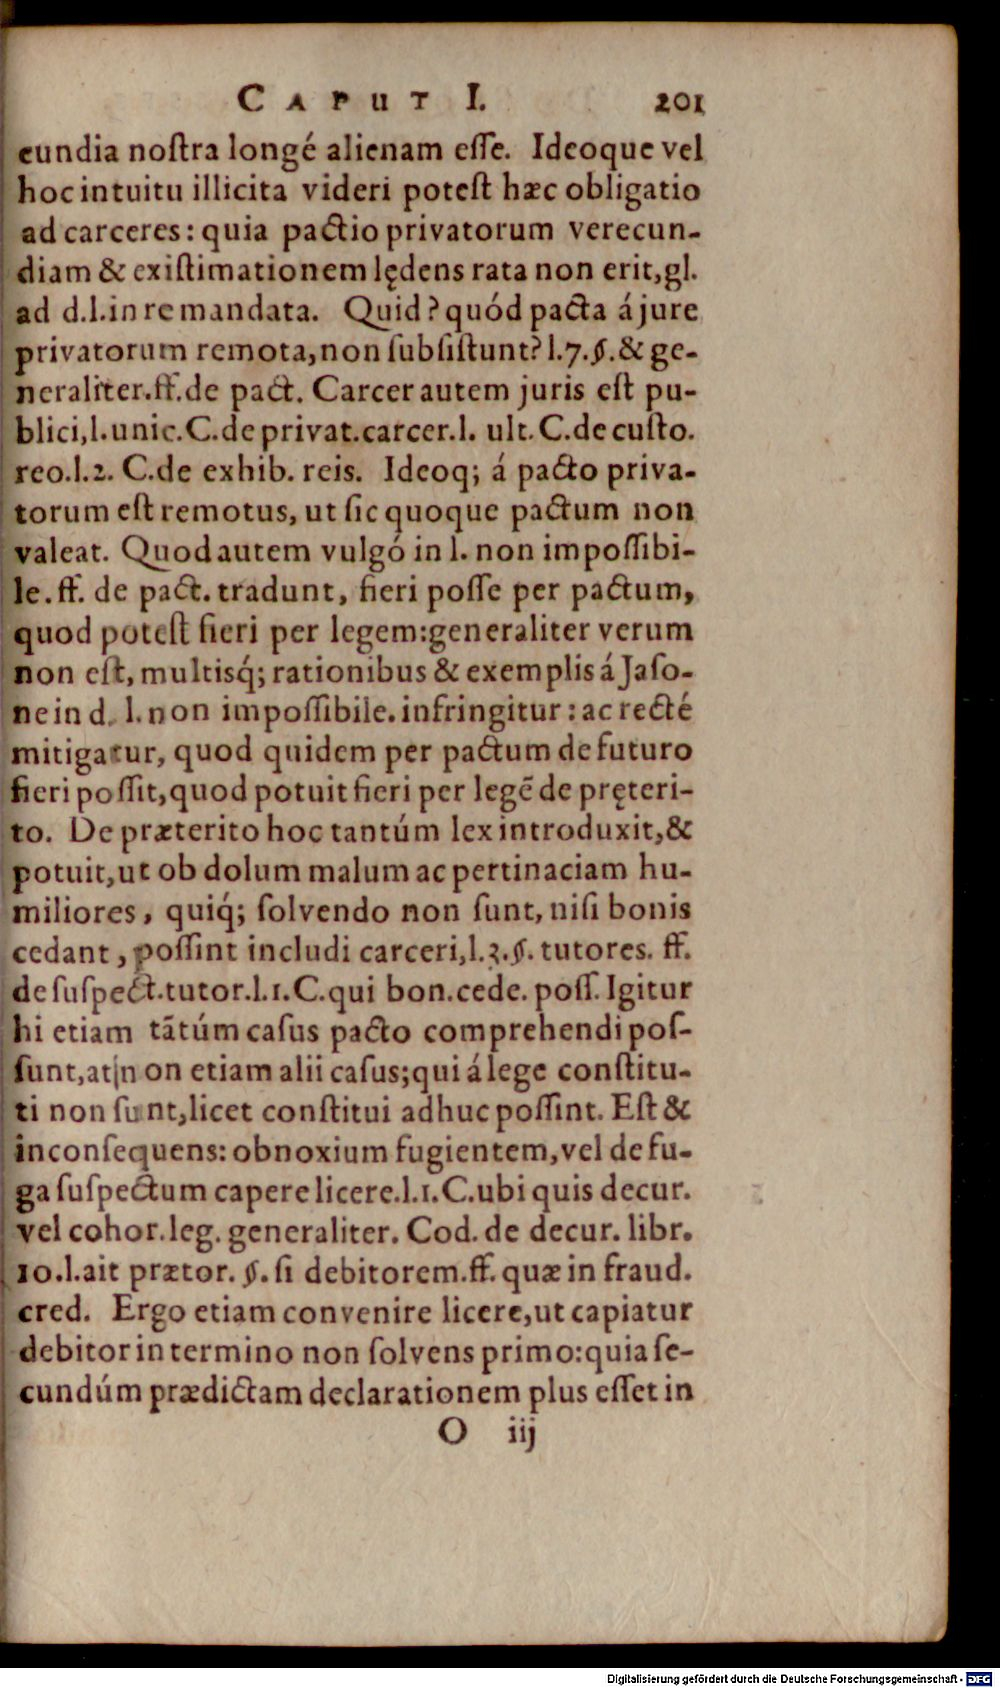 CAPUT I. 201
cundia noſtra longé alienam eſſe. Ideoque vel
hoc intuitu illicita videri poteſt hæc obligatio
ad carceres: quia pactio privatorum verecun-
diam & exiſtimationem lędens rata non erit, gl.
ad d.l. in re mandata. Quid? quód pacta á jure
privatorum remota, non ſubſiſtunt? l.7.§. & ge-
neraliter. ff. de pact. Carcer autem juris eſt pu-
blici, l. unic. C. de privat. carcer. l. ult. C. de cuſto.
reo. l.2. C. de exhib. reis. Ideoq; á pacto priva-
torum eſt remotus, ut ſic quoque pactum non
valeat. Quod autem vulgó in l. non impoſſibi-
le. ff. de pact. tradunt, fieri poſſe per pactum,
quod poteſt fieri per legem: generaliter verum
non eſt, multisq́; rationibus & exemplis á Jaſo-
ne in d. l. non impoſſibile. infringitur: ac recté
mitigatur, quod quidem per pactum de futuro
fieri poſſit, quod potuit fieri per legẽ de pręteri-
to. De præterito hoc tantúm lex introduxit, &
potuit, ut ob dolum malum ac pertinaciam hu-
miliores, quiq́; ſolvendo non ſunt, niſi bonis
cedant, poſſint includi carceri, l.3.§. tutores. ff.
de ſuſpect. tutor. l.1. C. qui bon. cede. poſſ. Igitur
hi etiam tãtúm caſus pacto comprehendi poſ-
ſunt, at non etiam alii caſus; qui á lege conſtitu-
ti non ſunt, licet conſtitui adhuc poſſint. Eſt &
inconſequens: obnoxium fugientem, vel de fu-
ga ſuſpectum capere licere. l.1. C. ubi quis decur.
vel cohor. leg. generaliter. Cod. de decur. libr.
10. l. ait prætor. §. ſi debitorem. ff. quæ in fraud.
cred. Ergo etiam convenire licere, ut capiatur
debitor in termino non ſolvens primo: quia ſe-
cundúm prædictam declarationem plus eſſet in
O iij
Digitalisierung gefördert durch die Deutsche Forschungsgemeinschaft - DFG